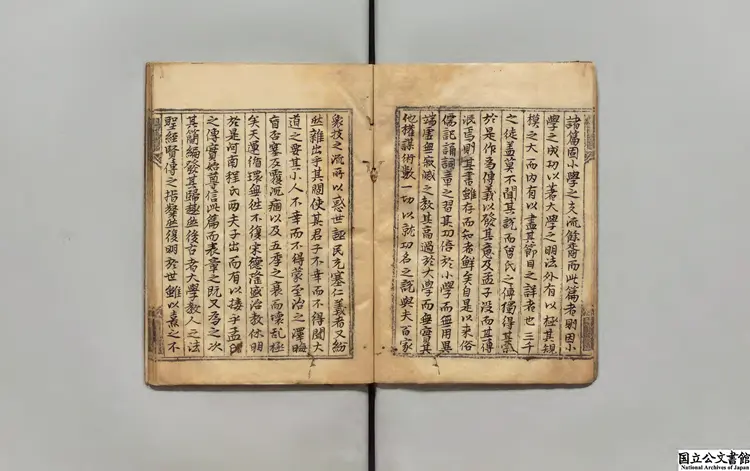 諸篇固小學之支流餘裔而此篇者則因小
學之成功以著大學之明法外有以極其規
模之大而内有以盡其節目之詳者也三千
之徒盖莫不聞其說而曾氏之傳獨得其宗
於是作為傳義以發其意及孟子沒而其傳
泯焉則其書雖存而知者鮮矣自是以來俗
儒記誦詞章之習其功倍於小學而無用異
端虛無寂滅之教其高過於大學而無實其
他權謀術數一切以就功名之說與夫百家
衆技之流所以惑世誣民充塞仁義者又紛
然雜出乎其間使其君子不幸而不得聞大
道之要其小人不幸而不得蒙至治之澤晦
盲否塞反覆沉痼以及五季之衰而壞亂極
矣天運循環無往不復宋德隆盛治教休明
於是河南程氏兩夫子出而有以接乎孟氏
之傳實始尊信此篇而表章之既又為之次
其簡編發其歸趣然後古者大學教人之法
聖經賢傳之指粲然復明於世雖以熹之不
国立公文書館
National Archives of Japan